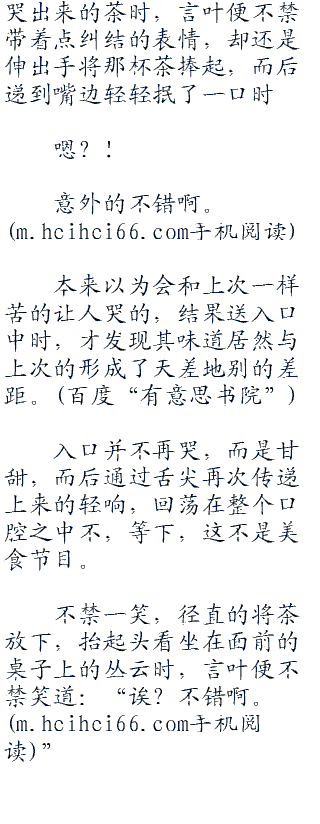 哭出来的茶时，言叶便不禁
带着点纠结的表情，却还是
伸出手将那杯茶捧起，而后
递到嘴边轻轻抿了一口时
嗯？！
意外的不错啊。
(m.hcihci66.com手机阅读)
本来以为会和上次一样
苦的让人哭的，结果送入口
中时，才发现其味道居然与
上次的形成了天差地别的差
距。(百度“有意思书院”)
入口并不再哭，而是甘
甜，而后通过舌尖再次传递
上来的轻响，回荡在整个口
腔之中不，等下，这不是美
食节目。
不禁一笑，径直的将茶
放下，抬起头看坐在面前的
桌子上的丛云时，言叶便不
禁笑道：“诶？不错啊。
(m.hcihci66.com手机阅
读)”